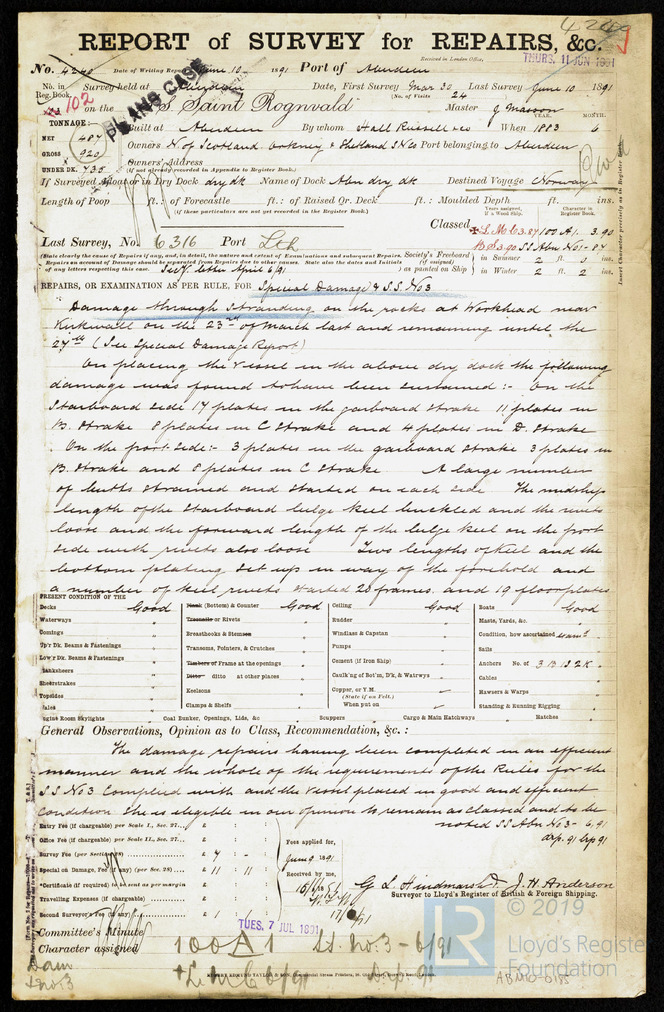 4240
REPORT of SURVEY for REPAIRS, &c.
Received in London Office,
THURS. 11 JUN 1891
No. 4240 Date of Writing Report June 10 1891 Port of Aberdeen
PLANS CASE
No. in Reg. Book. Survey held at Aberdeen Date, First Survey Mar 30 Last Survey June 10 1891
(No. of Visits 24
102 on the S.S. Saint Rognvald Master J Masson
TONNAGE:
YEAR. MONTH.
NET 487 Built at Aberdeen By whom Hall Russell & Co When 1883 6
GROSS 920 Owners N. of Scotland, Orkney & Shetland S N Co Port belonging to Aberdeen
UNDER DK. 735 Owners' Address
(If not already recorded in Appendix to Register Book.)
If Surveyed Afloat or in Dry Dock dry dk Name of Dock Aben dry dk Destined Voyage Norway
Length of Poop ft.: of Forecastle ft.: of Raised Qr. Deck ft.: Moulded Depth ft. ins.
(If these particulars are not yet recorded in the Register Book.)
Years assigned, if a Wood Ship. Character in Register Book.
Insert Character precisely as in Register Book
Classed
Last Survey, No. 6316 Port Lth
B.S. 3.90 SS Abn No 1 - 87
(State clearly the cause of Repairs if any, and, in detail, the nature and extent of Examinations and subsequent Repairs.
Repairs on account of Damage should be separated from Repairs due to other causes. State also the dates and Initials
of any letters respecting this case. Secy's letter April 6/91
Society's Freeboard (if assigned) as painted on Ship
in Summer 2 ft. 0 ins.
in Winter 2 ft. 2 ins.
REPAIRS, OR EXAMINATION AS PER RULE, FOR Special Damage & S.S. No 3
Damage through Stranding on the rocks at Workhead near
Kirkwall on the 23rd of March last and remaining until the
27th (See Special Damage Report)
On placing the vessel in the above dry dock the following
damage was found to have been sustained :- On the
Starboard side 17 plates in the garboard strake 11 plates in
B. strake 8 plates in C strake and 4 plates in D. strake
On the port side:- 3 plates in the garboard strake 3 plates in
B. strake and 8 plates in C strake A large number
of butts strained and started on each side The midship
length of the starboard bilge keel buckled and the rivets
loose and the forward length of the bilge keel on the port
side with rivets also loose Two lengths of keel and the
bottom plating set up in way of the forehold and
a number of keel rivets started 20 frames and 19 floorplates
PRESENT CONDITION OF THE
Decks Good
Waterways "
Comings "
Up'r Dk. Beams & Fastenings "
Low'r Dk. Beams & Fastenings "
Planksheers "
Sheerstrakes "
Topsides "
Wales "
Engine Room Skylights
Plank (Bottom) & Counter Good
Treenails or Rivets "
Breasthooks & Stemson "
Transoms, Pointers, & Crutches "
Timbers or Frame at the openings "
Ditto ditto at other places "
Keelsons "
Clamps & Shelfs "
Coal Bunker, Openings, Lids, &c
Ceiling Good
Rudder "
Windlass & Capstan "
Pumps "
Cement (if Iron Ship) "
Caulk'ng of Bot'm, D'k, & Waterwys "
Copper, or Y.M.
(State if on Felt.)
When put on
Scuppers
Cargo & Main Hatchways
Boats Good
Masts, Yards, &c. "
Condition, how ascertained
Sails "
Anchors No. of 3 B 1 S 2 K
Cables "
Hawsers & Warps "
Standing & Running Rigging "
Hatches
General Observations, Opinion as to Class, Recommendation, &c. :
The damage repairs having been completed in an efficient
manner and the whole of the requirements of the Rules for the
S S No 3 complied with and the vessel placed in good and efficient
condition She is eligible in our opinion to remain as classed and to be
noted SS Abn No 3 - 6.91
Entry Fee (if chargeable) per Scale I., Sec. 27... £ : :
Office Fee (if chargeable) per Scale II., Sec. 27... £ : :
Survey Fee (per Section 28) £ 4 : - :
Special on Damage, Fee (if any) (per Sec. 28) £ 11 : 11 :
*Certificate (if required) to be sent as per margin
Travelling Expenses (if chargeable) £ : :
Second Surveyor's Fee (if any) £ 1 : :
Fees applied for,
June 9 1891
Received by me,
G. L. Hindmarsh J. H. Anderson
Surveyor to Lloyd's Register of British & Foreign Shipping.
Committee's Minute TUES. 7 JUL 1891
Character assigned 100A1 SS. No. 3 - 6/91
+ L.M.C 6/91
No. 3
ROBERT EDMUND TAYLOR & SON
© 2019
LR
Lloyd's Register
Foundation
ABN10-0155